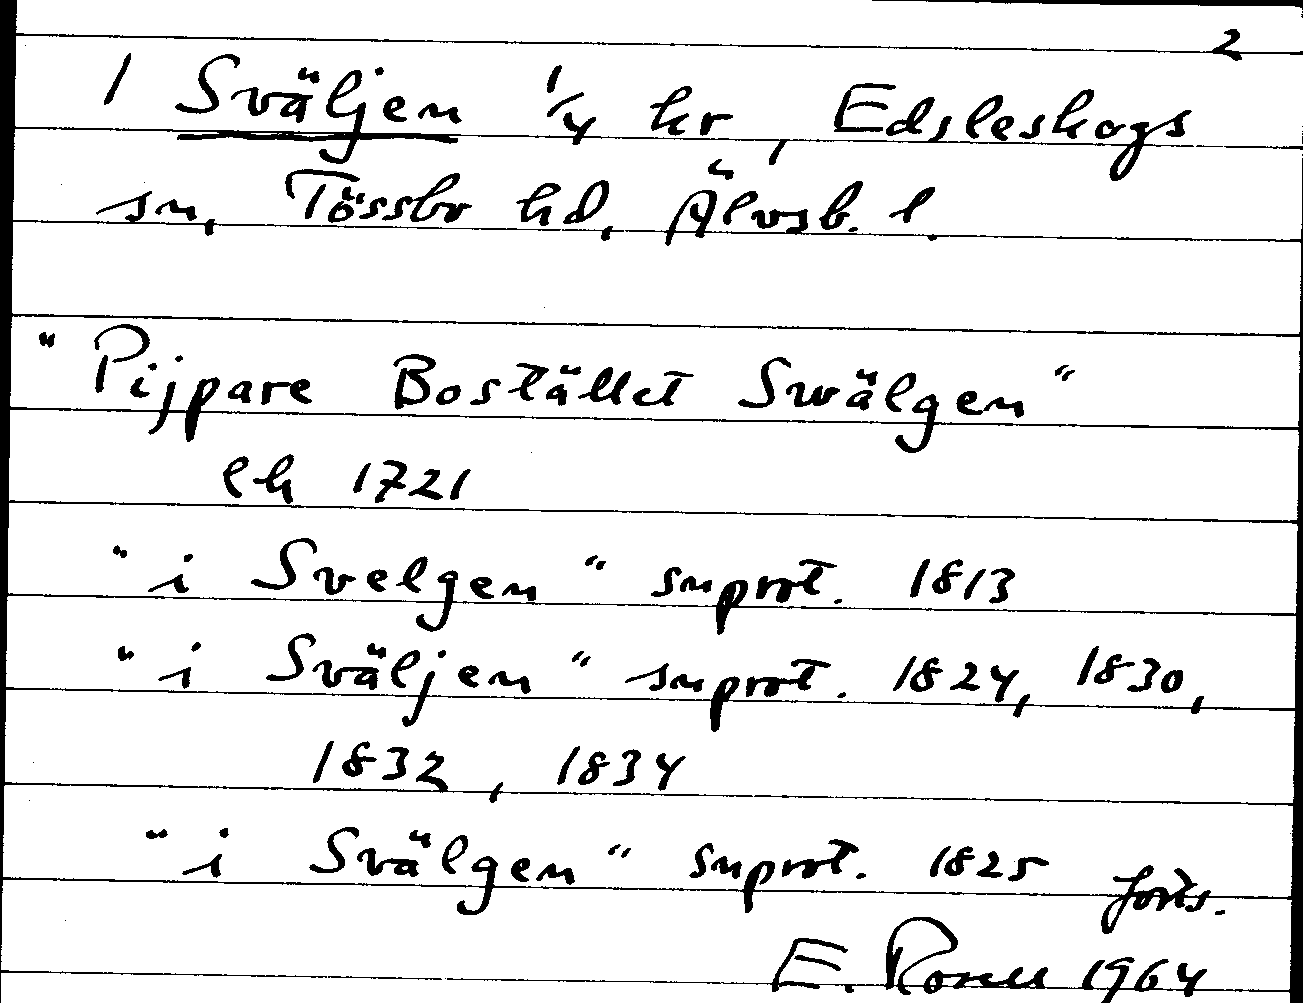 2
1 Sväljen 1/4 hr, Edsleskogs
sn, Tössbo hd, Älvsb. l.
"Pijpare Bostället Swälgen"
eh 1721
"i Svelgen" snprot. 1813
"i Sväljen" snprot. 1824, 1830,
1832, 1834
"i Svälgen" snprot. 1825 forts.
E. 1964